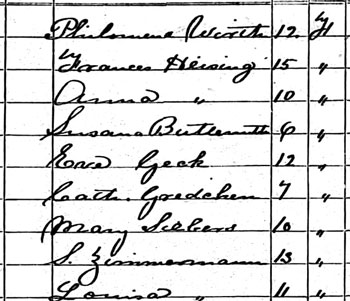 Philomena Wirth 12 F
Frances Heising 15 "
Anna " 10 "
Susana Butlemuth 6 "
Eva Geck 12 "
Cath. Gredchen 7 "
Mary Siebers 10 "
S. Zimmermann 13 "
Louisa " 11 "